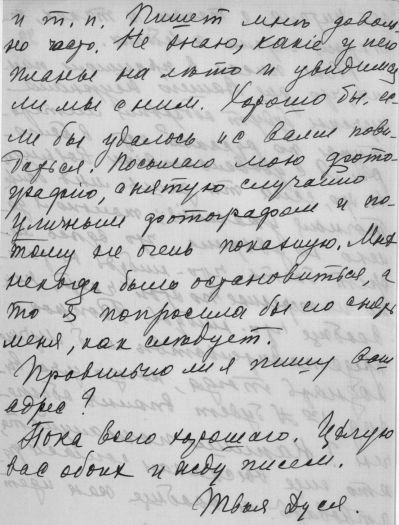 и т. п. Пишет мнѣ доволь-
но часто. Не знаю, какіе у него
планы на лѣто и увидимся
ли мы с ним. Хорошо бы, ес-
ли бы удалось и с Вами пови-
даться. Посылаю мою фото-
графію, снятую случайно
уличным фотографом и по-
тому не очень показную. Мнѣ
некогда было остановиться, а
то я попросила бы его снять
меня, как слѣдует.
Правильно ли я пишу ваш
адрес?
Пока всего хорошаго. Цѣлую
вас обоих и жду писем.
Твоя Дуся.